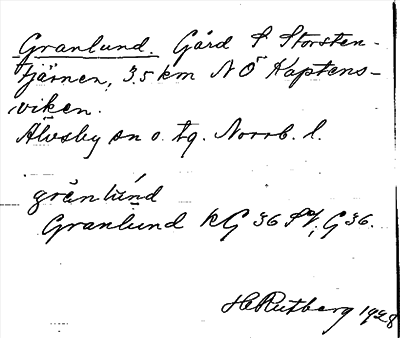 Granlund. Gård S Storsten-
tjärnen, 3.5 km N Ö Kaptens-
viken.
Älvsby sn o. tg. Norrb. l.
grä̀nlúnd
Granlund KG 36 SV, G 36.
HRutberg 1928